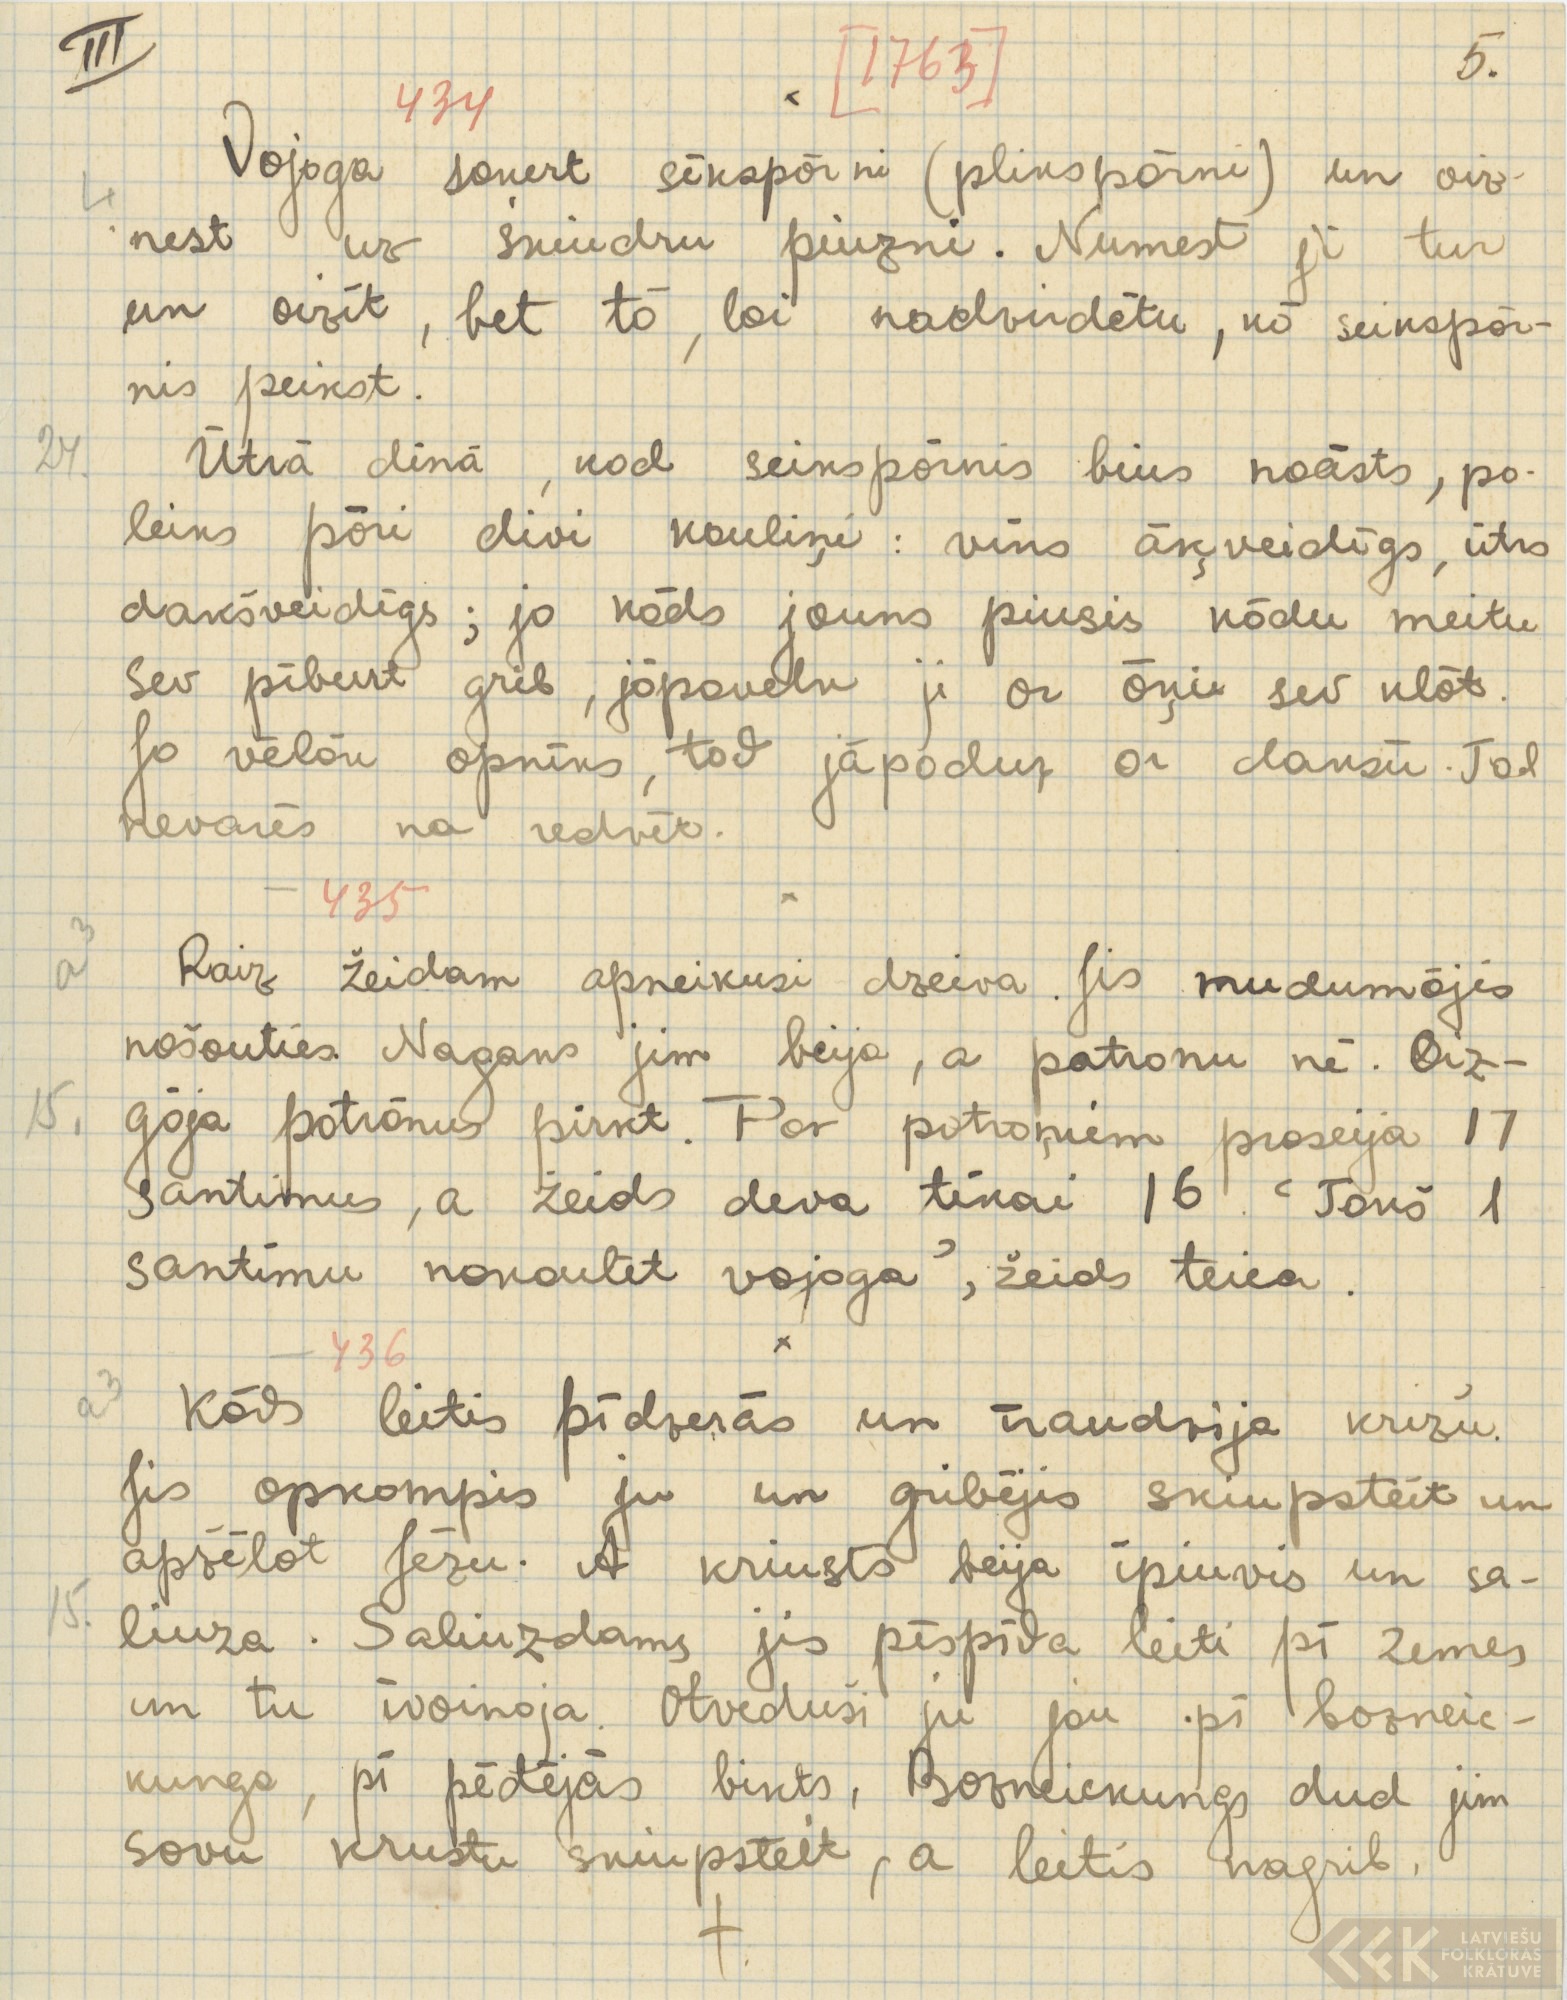 III
[1763]
5.
434
Vojoga sokert sīkspōrni (plikspōrni) un aiz-
4.
nest uz škiudru piuzni. Numest jī tur
un aizīt, bet tō, loi nadzirdētu, kō seikspōr-
nis peikst.
24.
Ūtrā dīnā, kod seikspōrnis bius noāsts, po-
leiks pōri divi kauliņi: vīns āķveidīgs, ūtrs
dakšveidīgs; jo kōds jouns piusis kōdu meitu
sev pīburt grib, jōpovelk jī or ōķi sev klōt.
Jo vēlōk opnīks, tod jāpodur or dakšu. Tod
nevarēs na redzēt.
435
a3
Raiz žeidam apneikusi dzeiva. Jis nudumōjis
nošoutīs. Nagans jim beija, a patronu nē. Aiz-
15.
gōja potronus pirkt. Par potroņiem proseija 17
santimus, a žeids deva tikai 16. "Tokš 1
santīmu nokoulēt vojoga", žeids teica.
436
a3
Kōds leitis pīdzerās un īraudzija krizu.
Jis opkompis ju un gribējis skiupsteit un
apžēlot Jēzu. A kriusts beija īpiuvis un sa-
15.
liuza. Saliuzdams jis pīspīda leiti pī zemes
un tu īvoinoja. Otveduši ju jau pī bozneic-
kunga, pī pēdējās bikts. Bozneickungs dud jim
sovu krustu skiupsteit, a leitis nagrib.
LATVIEŠU
FOLKLORAS
KRĀTUVE